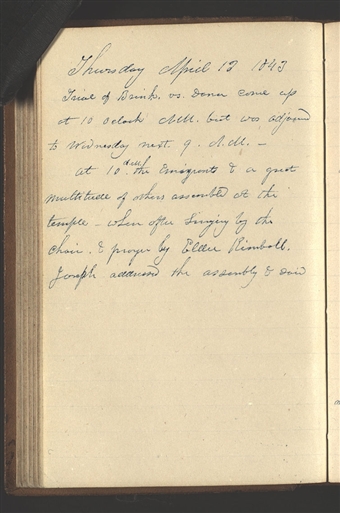 Thursday April 13 1843
Trial of Brink. vs. Dana come up
at 10 oclock A.M. but was adjourned
to Wednesday next. 9. A.M. —
at 10 A.M. the Emigrants & a great
multitude of others assembled at the
temple — when after Singing by the
choir. & prayer by Elder Kimball.
Joseph addressed the assembly & said